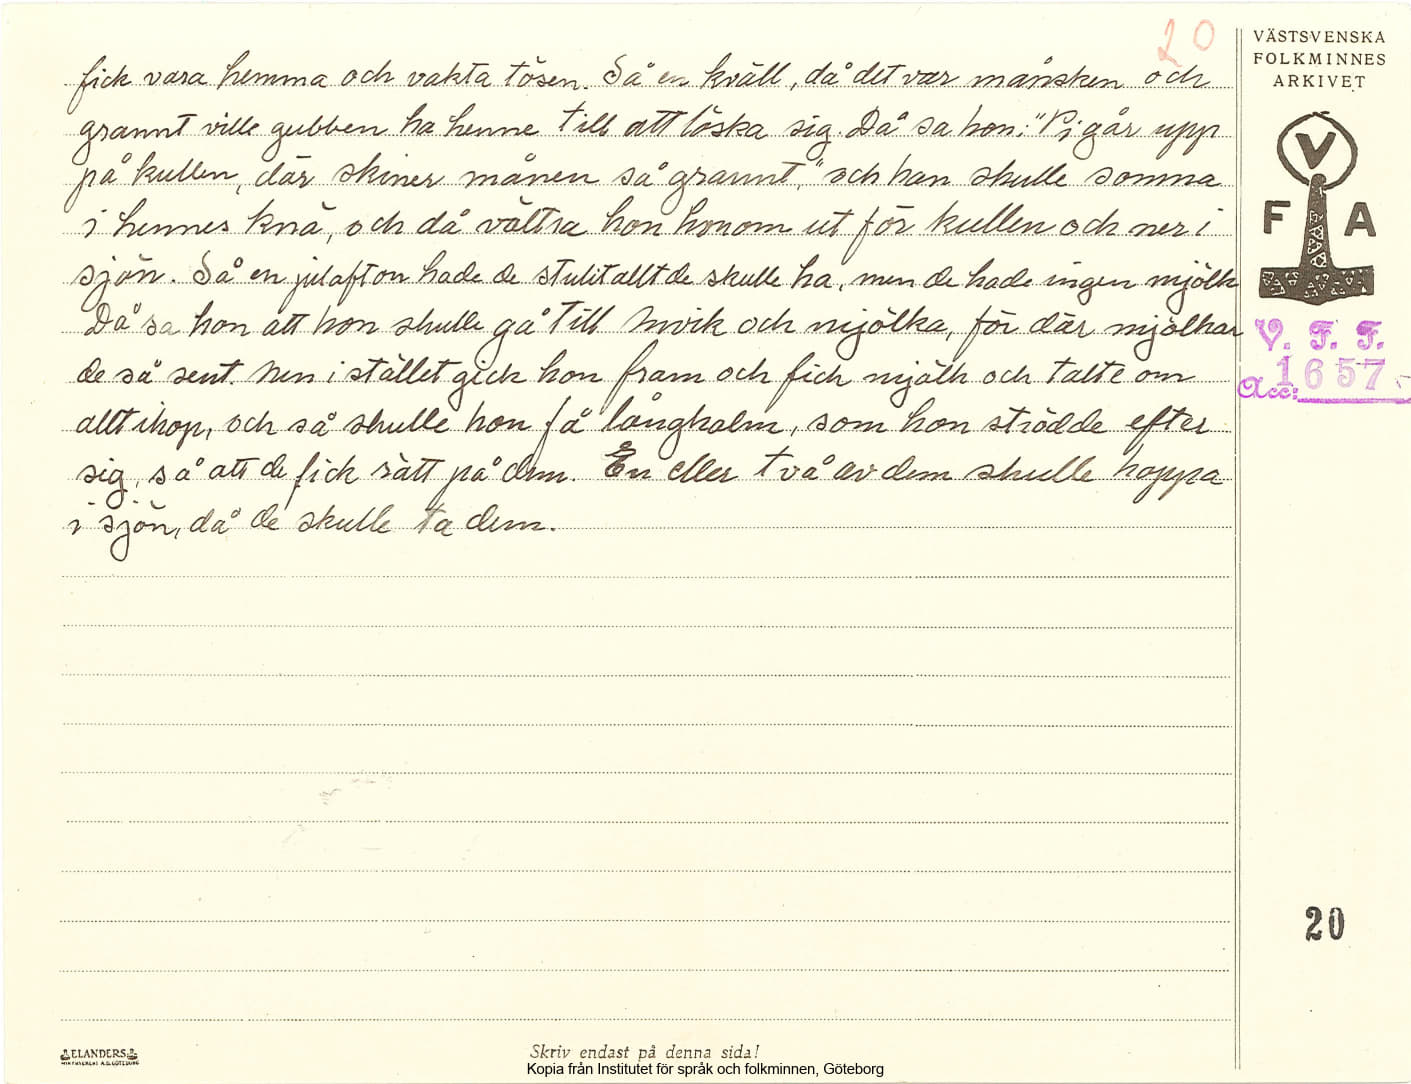 20
VÄSTSVENSKA
FOLKMINNES
ARKIVET
fick vara hemma och vakta tösen. Så en kväll, då det var månsken och
grannt ville gubben ha henne till att löska sig. Då sa hon: "Vi går upp
på kullen, där skiner månen så grannt," och han skulle somna
i hennes knä, och då vältra hon honom ut för kullen och ner i
sjön. Så en julafton hade de stulit allt de skulle ha, men de hade ingen mjölk
Då sa hon att hon skulle gå till och mjölka, för där mjölkar
de så sent. Men i stället gick hon fram och fick mjölk och talte om
allt ihop, och så skulle hon få långhalm, som hon strödde efter
sig, så att de fick rätt på dem. En eller två av dem skulle hoppa
i sjön, då de skulle ta dem.
V
F A
V. F. F.
Acc: 1657
20
ELANDERS
Skriv endast på denna sida!
Kopia från Institutet för språk och folkminnen, Göteborg